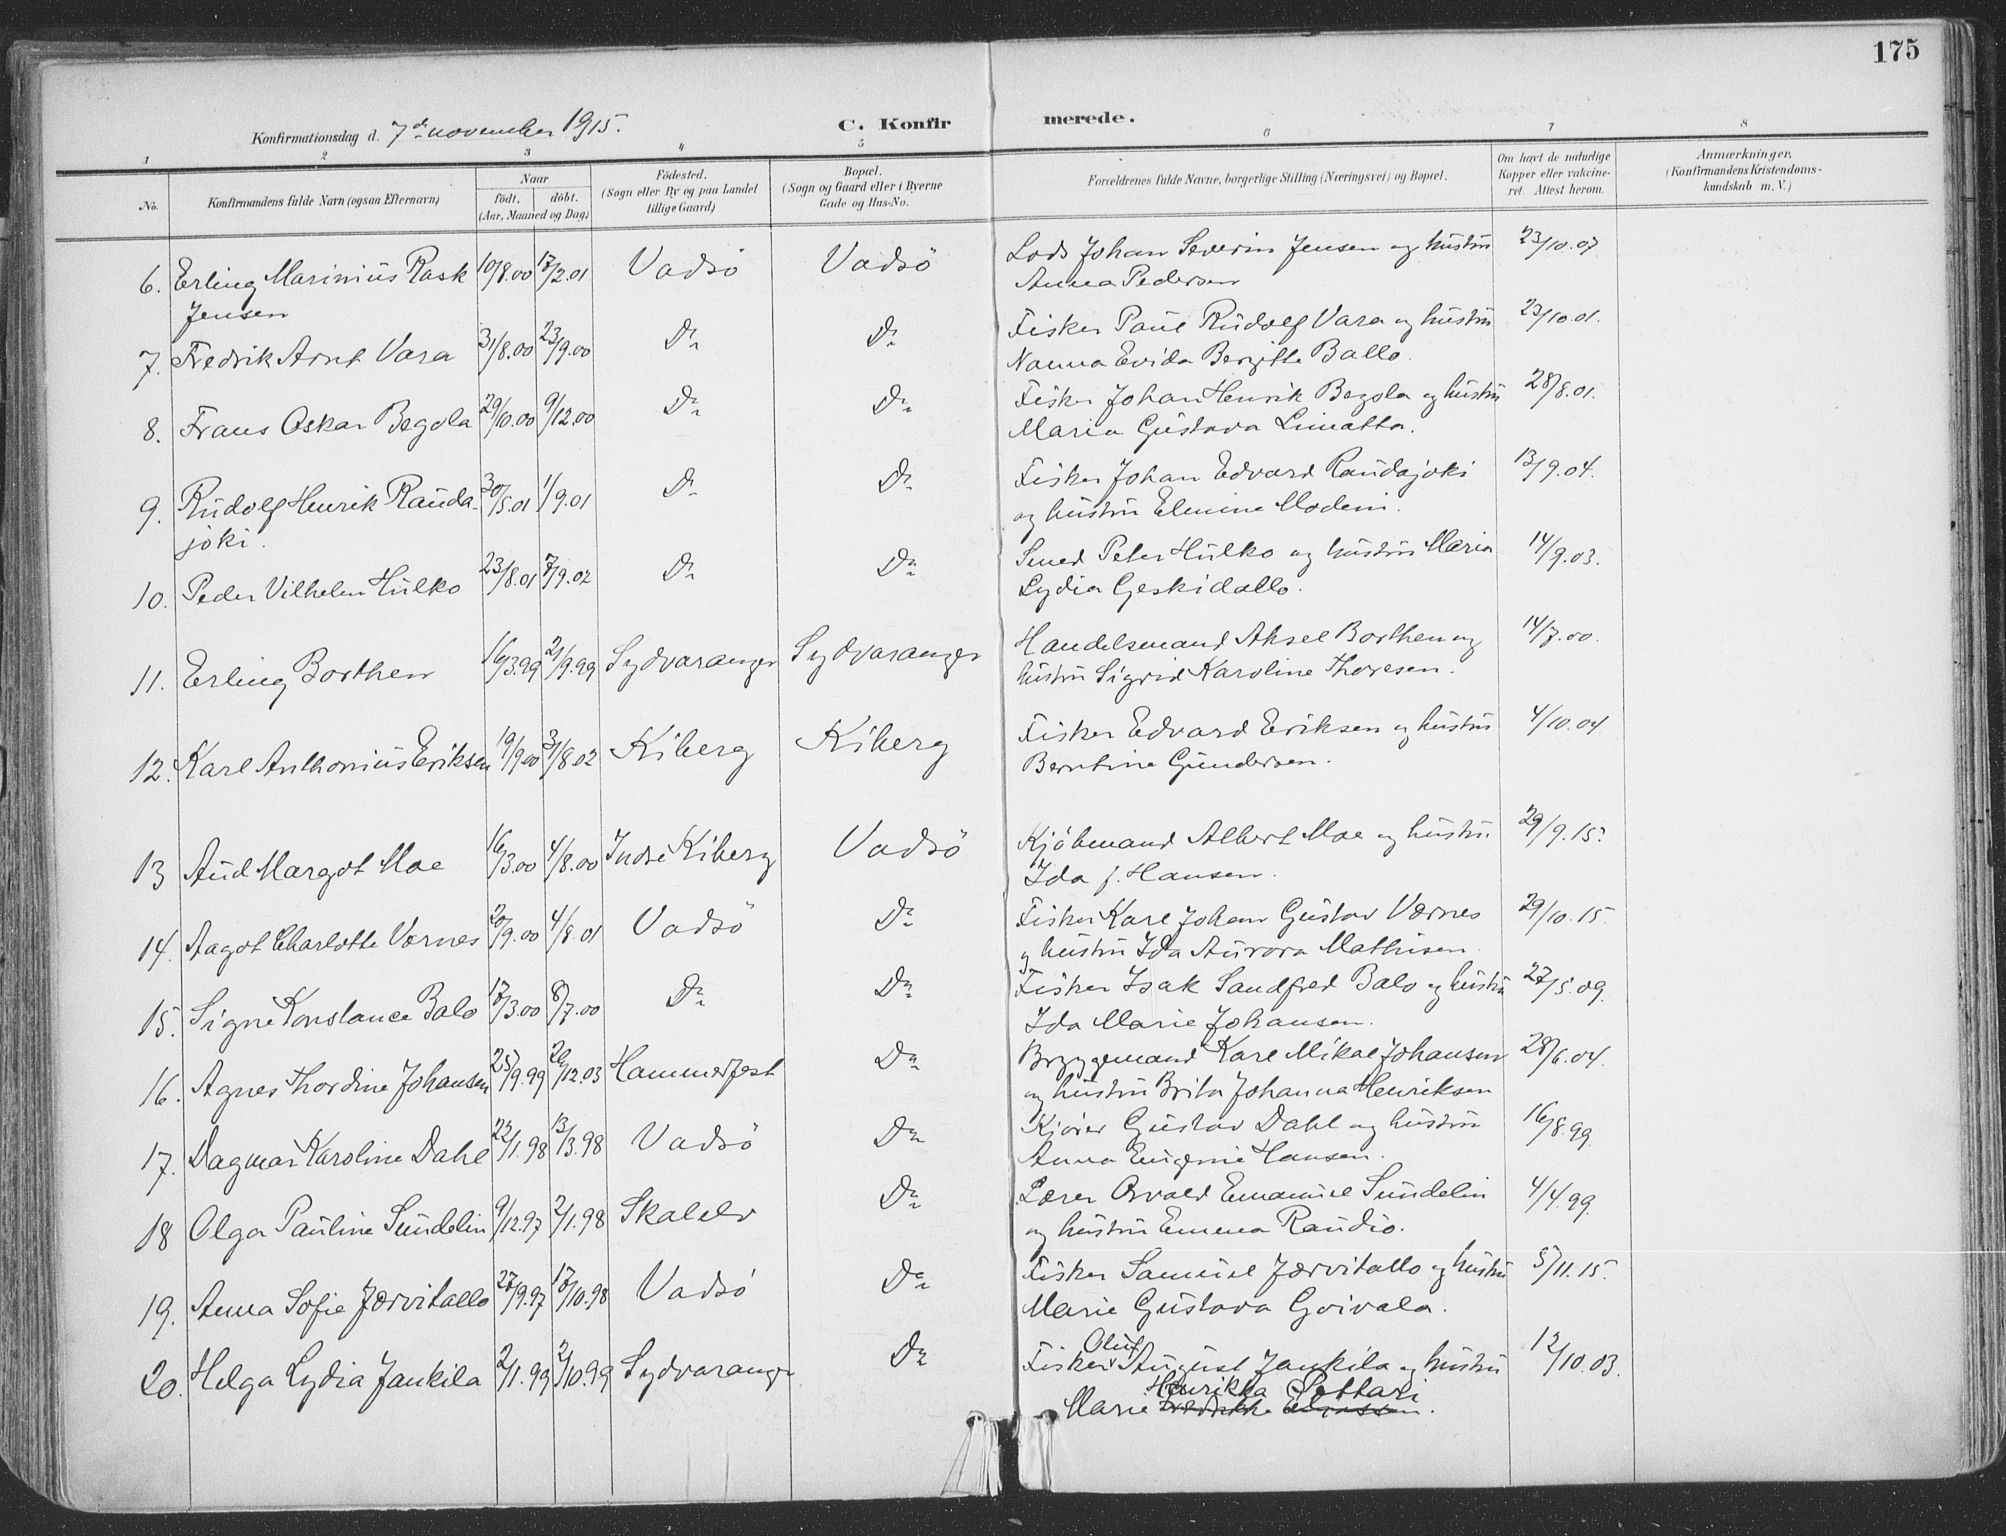 175
Konfirmationsdag d. 7de november 1915. C. Konfirmerede.
1 2 3 4 5 6 7 8
No. Konfirmandens fulde Navn (ogsaa Efternavn) Naar født. døbt. (Aar, Maaned og Dag) Fødested. (Sogn eller By og paa Landet tillige Gaard) Bopæl. (Sogn og Gaard eller i Byerne Gade og Hus-No. Forældrenes fulde Navne, borgerlige Stilling (Næringsvei) og Bopæl. Om havt de naturlige Kopper eller vakcineret. Attest herom. Anmærkninger. (Konfirmandens Kristendomskundskab m. V.)
6. Erling Marinius Rask 10/8.00 17/2.01 Vadsö Vadsö Lods Johan Severin Jensen og hustru 23/10.07
Jensen Anna Pedersen
7. Fredrik Arnt Vara 31/8.00 23/9.00 Do Do Fisker Paul Rudolf Vara og hustru 23/10.01.
Nanna Evida Bergitte Ballo.
8. Frans Oskar Begola 29/10.00 9/12.00 Do Do Fisker Johan Henrik Begola og hustru 28/8.01.
Maria Gustava Limatta.
9. Rudolf Henrik Rauda- 30/5.01 1/9.01 Do Do Fisker Johan Edvard Raudajoki 13/9.04.
joki. og hustru Elmine Modeni.
10. Peder Vilhelm Hulko 23/8.01 7/9.02 Do Do Smed Peter Hulko og hustru Maria 14/9.03.
Lydia Geskidallo.
11. Erling Borthen 16/3.99 21/9.99 Sydvaranger Sydvaranger Handelsmand Aksel Borthen og 14/7.00.
hustru Sigrid Karoline Thoresen.
12. Karl Anthonius Eriksen 19/9.00 31/8.02 Kiberg Kiberg Fisker Edvard Eriksen og hustru 4/10.04
Berntine Gundersen.
13 Aud Margot Moe 16/3.00 4/8.00 Indre Kiberg Vadsö Kjöbmand Albert Moe og hustru 29/9.15.
Ida f. Hansen.
14. Aagot Charlotte Værnes 20/9.00 4/8.01 Vadsö Do Fisker Karl Johan Gustav Værnes 29/10.15.
og hustru Ida Aurora Mathisen.
15. Signe Konstance Balo 17/3.00 8/7.00 Do Do Fisker Isak Sandfred Balo og hustru 27/5.09.
Ida Marie Johansen.
16. Agnes Thordine Johansen 25/9.99 26/12.03 Hammerfest Do Bryggemand Karl Mikal Johansen 28/6.04.
og hustru Brita Johanna Henriksen
17. Dagmar Karoline Dahl 22/1.98 13/3.98 Vadsö Do Kjører Gustav Dahl og hustru 16/8.99.
Anna Eugenie Hansen.
18 Olga Pauline Sundelin 9/12.97 2/1.98 Skalelv Do Lærer Osvald Emanuel Sundelin 4/4.99.
og hustru Emma Raudio.
19. Anna Sofie Jærvitallo 27/9.97 17/10.98 Vadsö Do Fisker Samuel Jærvitallo og hustru 5/11.15.
Marie Gustava Goivala.
20. Helga Lydia Jankila 2/1.99 2/10.99 Sydvaranger Do Fisker Oluf August Jankila og hustru 12/10.03.
Henrikka Pottari
Marie